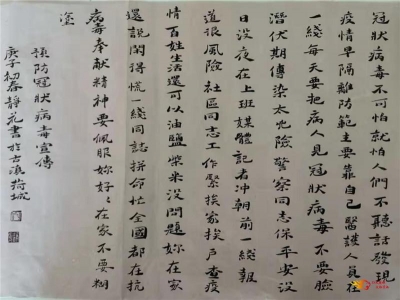 冠狀病毒不可怕就怕人們不聽話發現
疫情早隔離防範主要靠自己醫護人員在
一綫每天要把病人見冠狀病毒不要臉
潛伏期傳染太兇險警察同志保平安没
日没夜在上班媒體記者冲朝前一綫報
道很風險社區同志工作緊挨家挨户查疫
情百姓生活還可以油鹽柴米没問題妳在家
還説閑得慌一綫同誌拼命忙全國都在抗
病毒奉献精神要佩服妳好好在家不要糊
塗
預防冠狀病毒宣傳
庚子初春静元書於古滇荷城